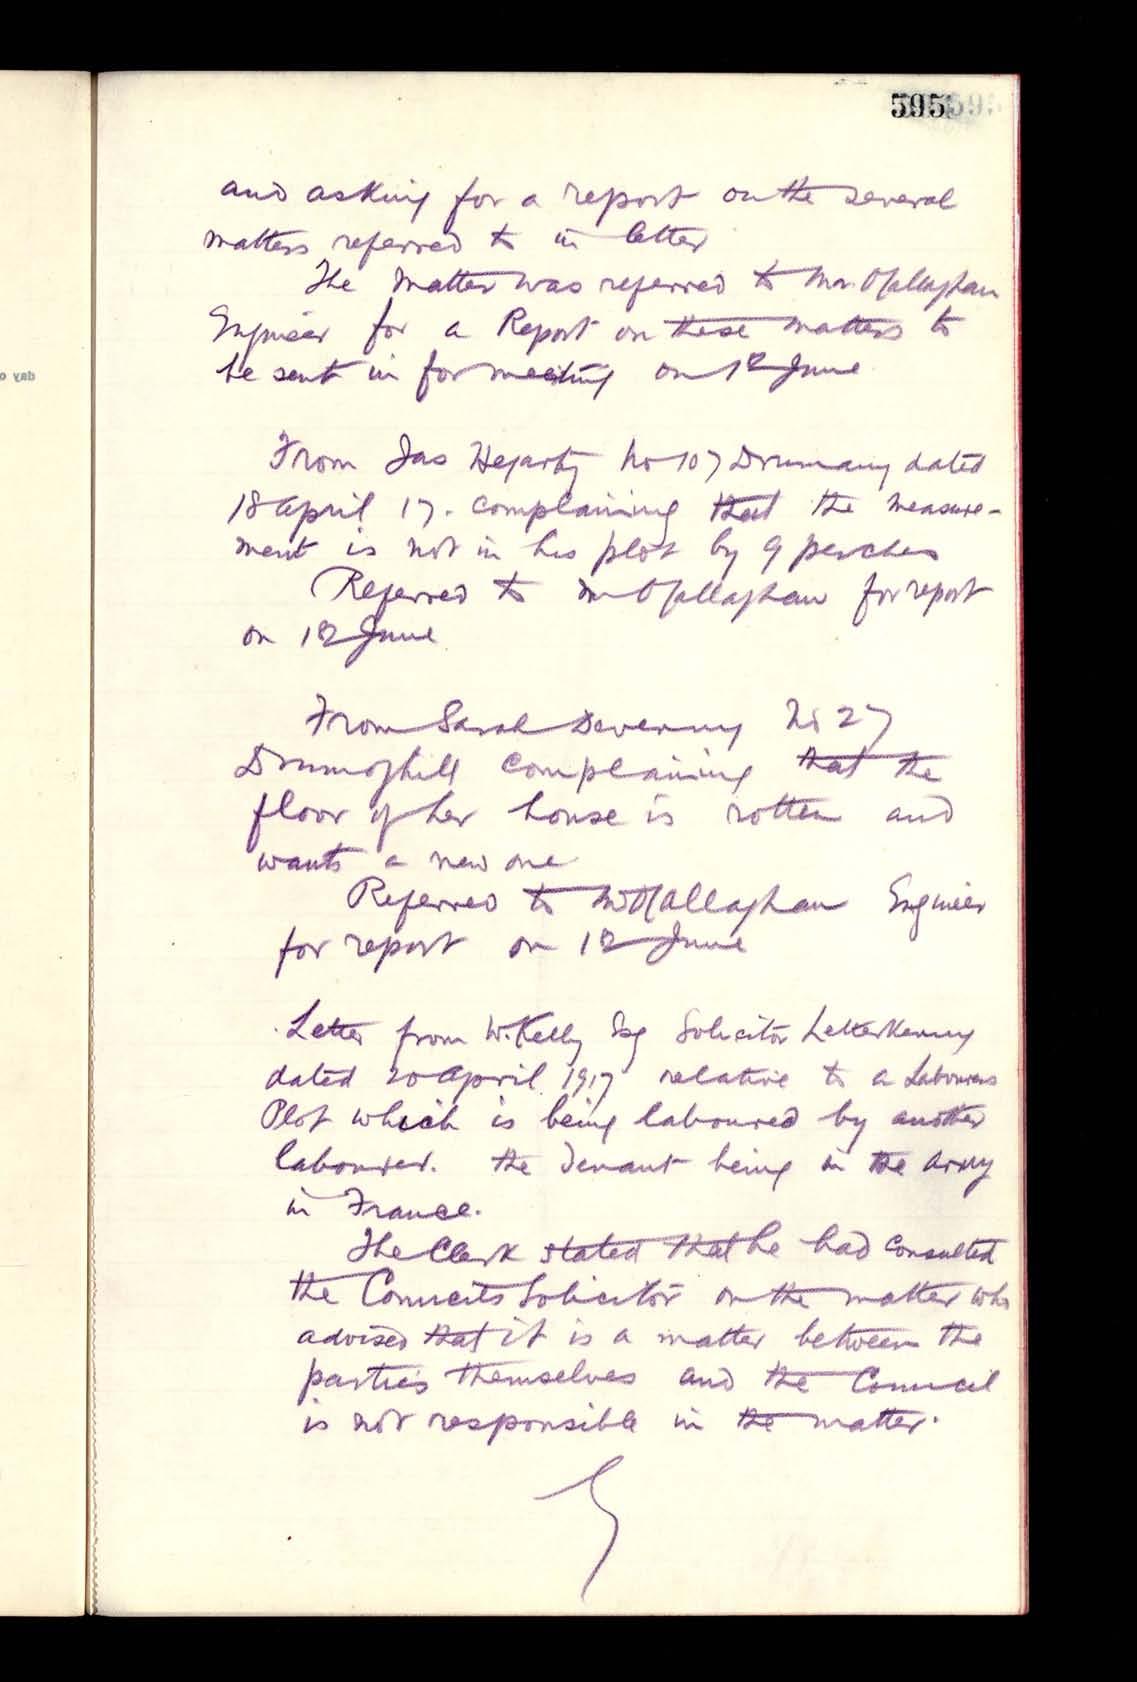 595
and asking for a report on the several
matters referred to in letter
The Matter was referred to Mr. O'Callaghan
Engineer for a Report on these matters to
be sent in for meeting on 12 June
From Jas Hegarty No 107 Drumany dated
18 April 17. complaining that the measure-
ment is not in his plot by 9 perches
Referred to Mr O'Callaghan for report
on 12 June
From Sarah Devenny No 27
Drumoghill complaining that the
floor of her house is rotten and
wants a new one
Referred to Mr O'Callaghan Engineer
for report on 12 June
Letter from W. Kelly Esq Solicitor Letterkenny
dated 20 April 1917 relative to a Labourers
Plot which is being laboured by another
labourer. the Tenant being in the army
in France.
The Clerk stated that he had consulted
the Council's Solicitor on the matter who
advised that it is a matter between the
parties themselves and the Council
is not responsible in the matter.